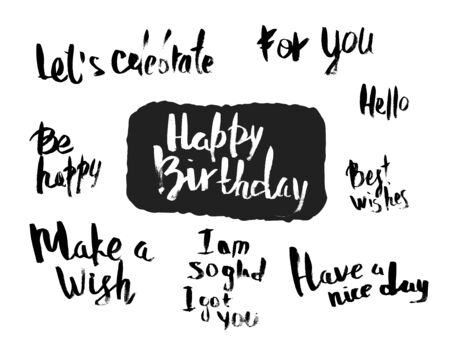 Let's celebrate
For you
Hello
Be
happy
Happy
Birthday
Best
wishes
Make a
Wish
I am
so glad
I got
you
Have a
nice day